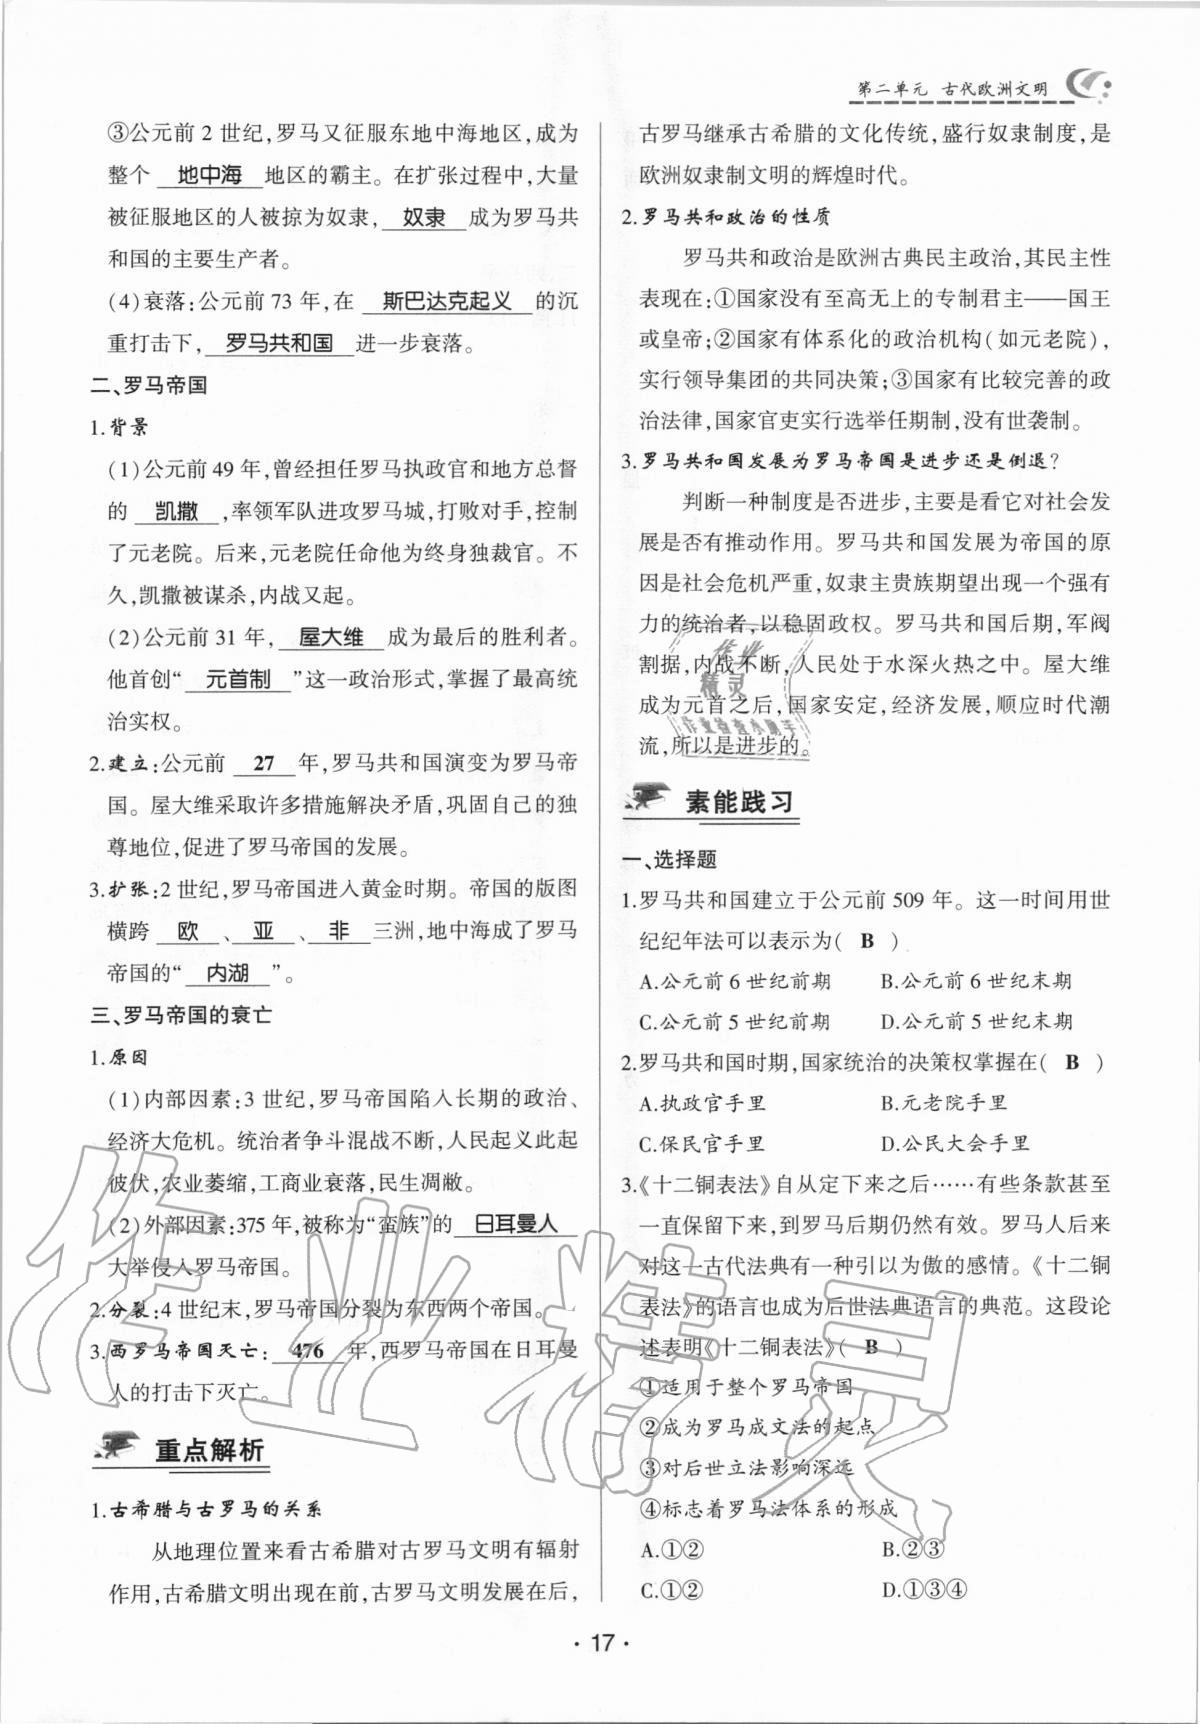 第二单元 古代欧洲文明
③公元前 2 世纪,罗马又征服东地中海地区,成为
整个 地中海 地区的霸主。在扩张过程中,大量
被征服地区的人被掠为奴隶, 奴隶 成为罗马共
和国的主要生产者。
(4)衰落:公元前 73 年,在 斯巴达克起义 的沉
重打击下, 罗马共和国 进一步衰落。
二、罗马帝国
1.背景
(1)公元前 49 年,曾经担任罗马执政官和地方总督
的 凯撒 ,率领军队进攻罗马城,打败对手,控制
了元老院。后来,元老院任命他为终身独裁官。不
久,凯撒被谋杀,内战又起。
(2)公元前 31 年, 屋大维 成为最后的胜利者。
他首创“ 元首制 ”这一政治形式,掌握了最高统
治实权。
2.建立:公元前 27 年,罗马共和国演变为罗马帝
国。屋大维采取许多措施解决矛盾,巩固自己的独
尊地位,促进了罗马帝国的发展。
3.扩张:2 世纪,罗马帝国进入黄金时期。帝国的版图
横跨 欧 、 亚 、 非 三洲,地中海成了罗马
帝国的“ 内湖 ”。
三、罗马帝国的衰亡
1.原因
(1)内部因素:3 世纪,罗马帝国陷入长期的政治、
经济大危机。统治者争斗混战不断,人民起义此起
彼伏,农业萎缩,工商业衰落,民生凋敝。
(2)外部因素:375 年,被称为“蛮族”的 日耳曼人
大举侵入罗马帝国。
2.分裂:4 世纪末,罗马帝国分裂为东西两个帝国。
3.西罗马帝国灭亡: 476 年,西罗马帝国在日耳曼
人的打击下灭亡。
重点解析
1.古希腊与古罗马的关系
从地理位置来看古希腊对古罗马文明有辐射
作用,古希腊文明出现在前,古罗马文明发展在后,
古罗马继承古希腊的文化传统,盛行奴隶制度,是
欧洲奴隶制文明的辉煌时代。
2.罗马共和政治的性质
罗马共和政治是欧洲古典民主政治,其民主性
表现在:①国家没有至高无上的专制君主——国王
或皇帝;②国家有体系化的政治机构(如元老院),
实行领导集团的共同决策;③国家有比较完善的政
治法律,国家官吏实行选举任期制,没有世袭制。
3.罗马共和国发展为罗马帝国是进步还是倒退?
判断一种制度是否进步,主要是看它对社会发
展是否有推动作用。罗马共和国发展为帝国的原
因是社会危机严重,奴隶主贵族期望出现一个强有
力的统治者,以稳固政权。罗马共和国后期,军阀
割据,内战不断,人民处于水深火热之中。屋大维
成为元首之后,国家安定,经济发展,顺应时代潮
流,所以是进步的。
作业
精灵
作业检查小助手
素能践习
一、选择题
1.罗马共和国建立于公元前 509 年。这一时间用世
纪纪年法可以表示为( B )
A.公元前 6 世纪前期 B.公元前 6 世纪末期
C.公元前 5 世纪前期 D.公元前 5 世纪末期
2.罗马共和国时期,国家统治的决策权掌握在( B )
A.执政官手里 B.元老院手里
C.保民官手里 D.公民大会手里
3.《十二铜表法》自从定下来之后……有些条款甚至
一直保留下来,到罗马后期仍然有效。罗马人后来
对这一古代法典有一种引以为傲的感情。《十二铜
表法》的语言也成为后世法典语言的典范。这段论
述表明《十二铜表法》( B )
①适用于整个罗马帝国
②成为罗马成文法的起点
③对后世立法影响深远
④标志着罗马法体系的形成
A.①② B.②③
C.①② D.①③④
作业精灵
·17·